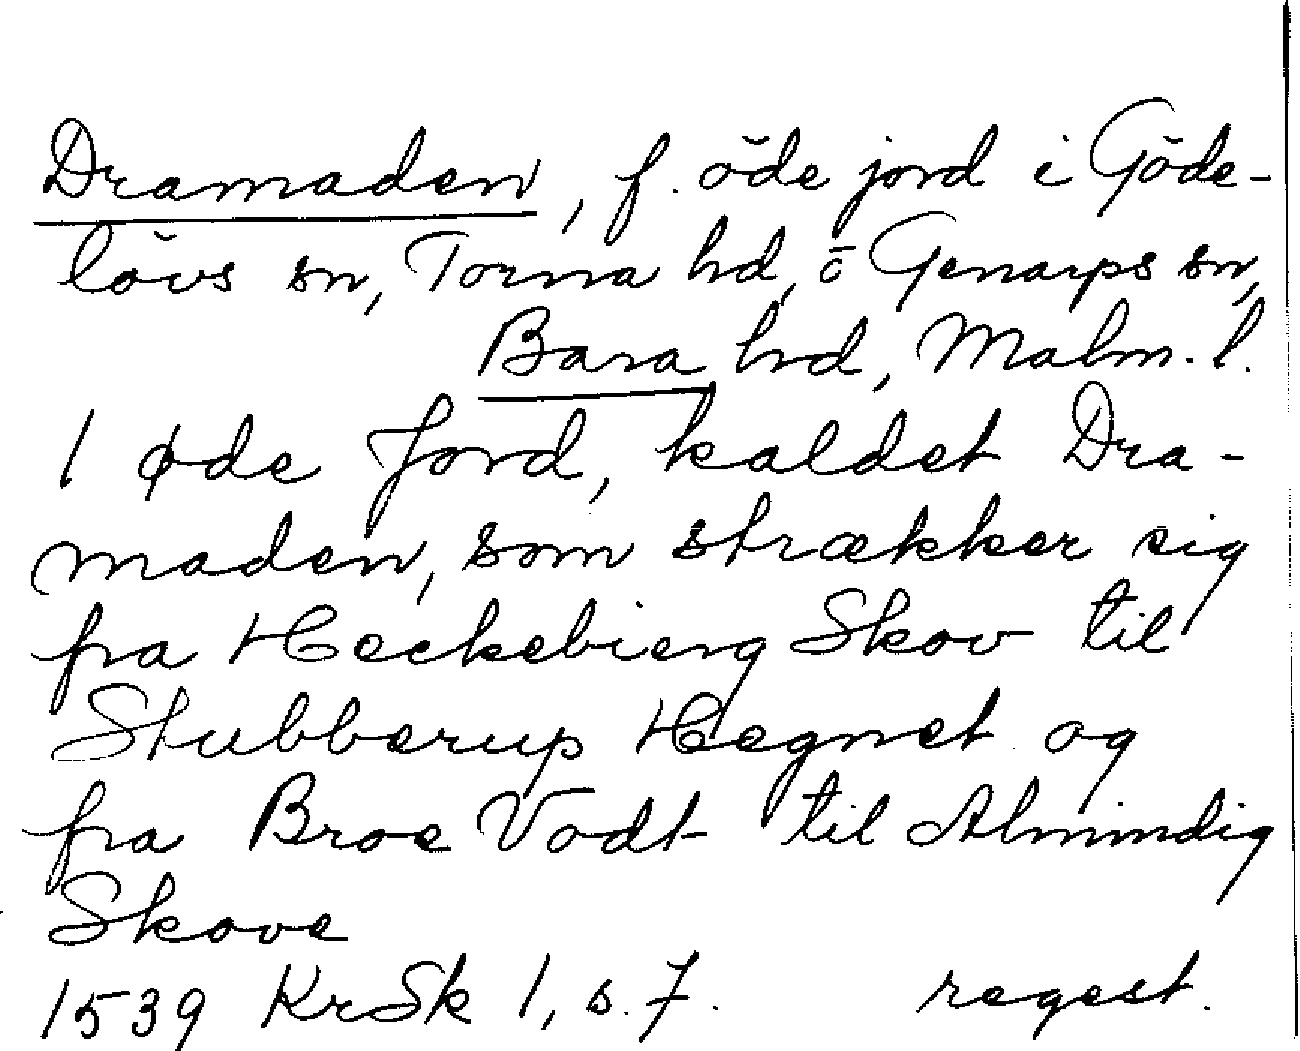 Dramaden, f. öde jord i Göde-
lövs sn, Torna hd, o Genarps sn,
Bara hd, Malm. l.
1 øde Jord, kaldet Dra-
maden, som strækker sig
fra Heckebierg Skov til
Stubberup Hegnet og
fra Broe Vodt til Almindig
Skove
1539 KrSk 1, s. 7. regest.